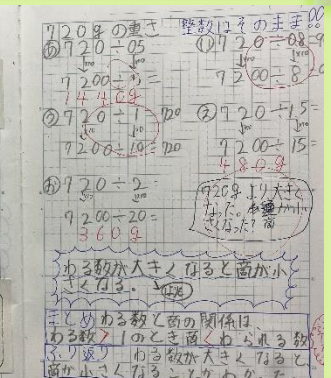 720gの重さ 整数はそのまま!!
あ 720÷0.5
7200÷5=
1440g
い 720÷0.8=9
7200÷8
う 720÷1=720
7200÷10=720
え 720÷1.5=
7200÷15=
480g
お 720÷2=
7200÷20=
360g
720gより大きく
なった。
さくなった?
わる数が大きくなると商が小
さくなる。
まとめ わる数と商の関係は
わる数>1のとき商<わられる数
ふり返り わる数が大きくなると
商が小さくなることがわかった